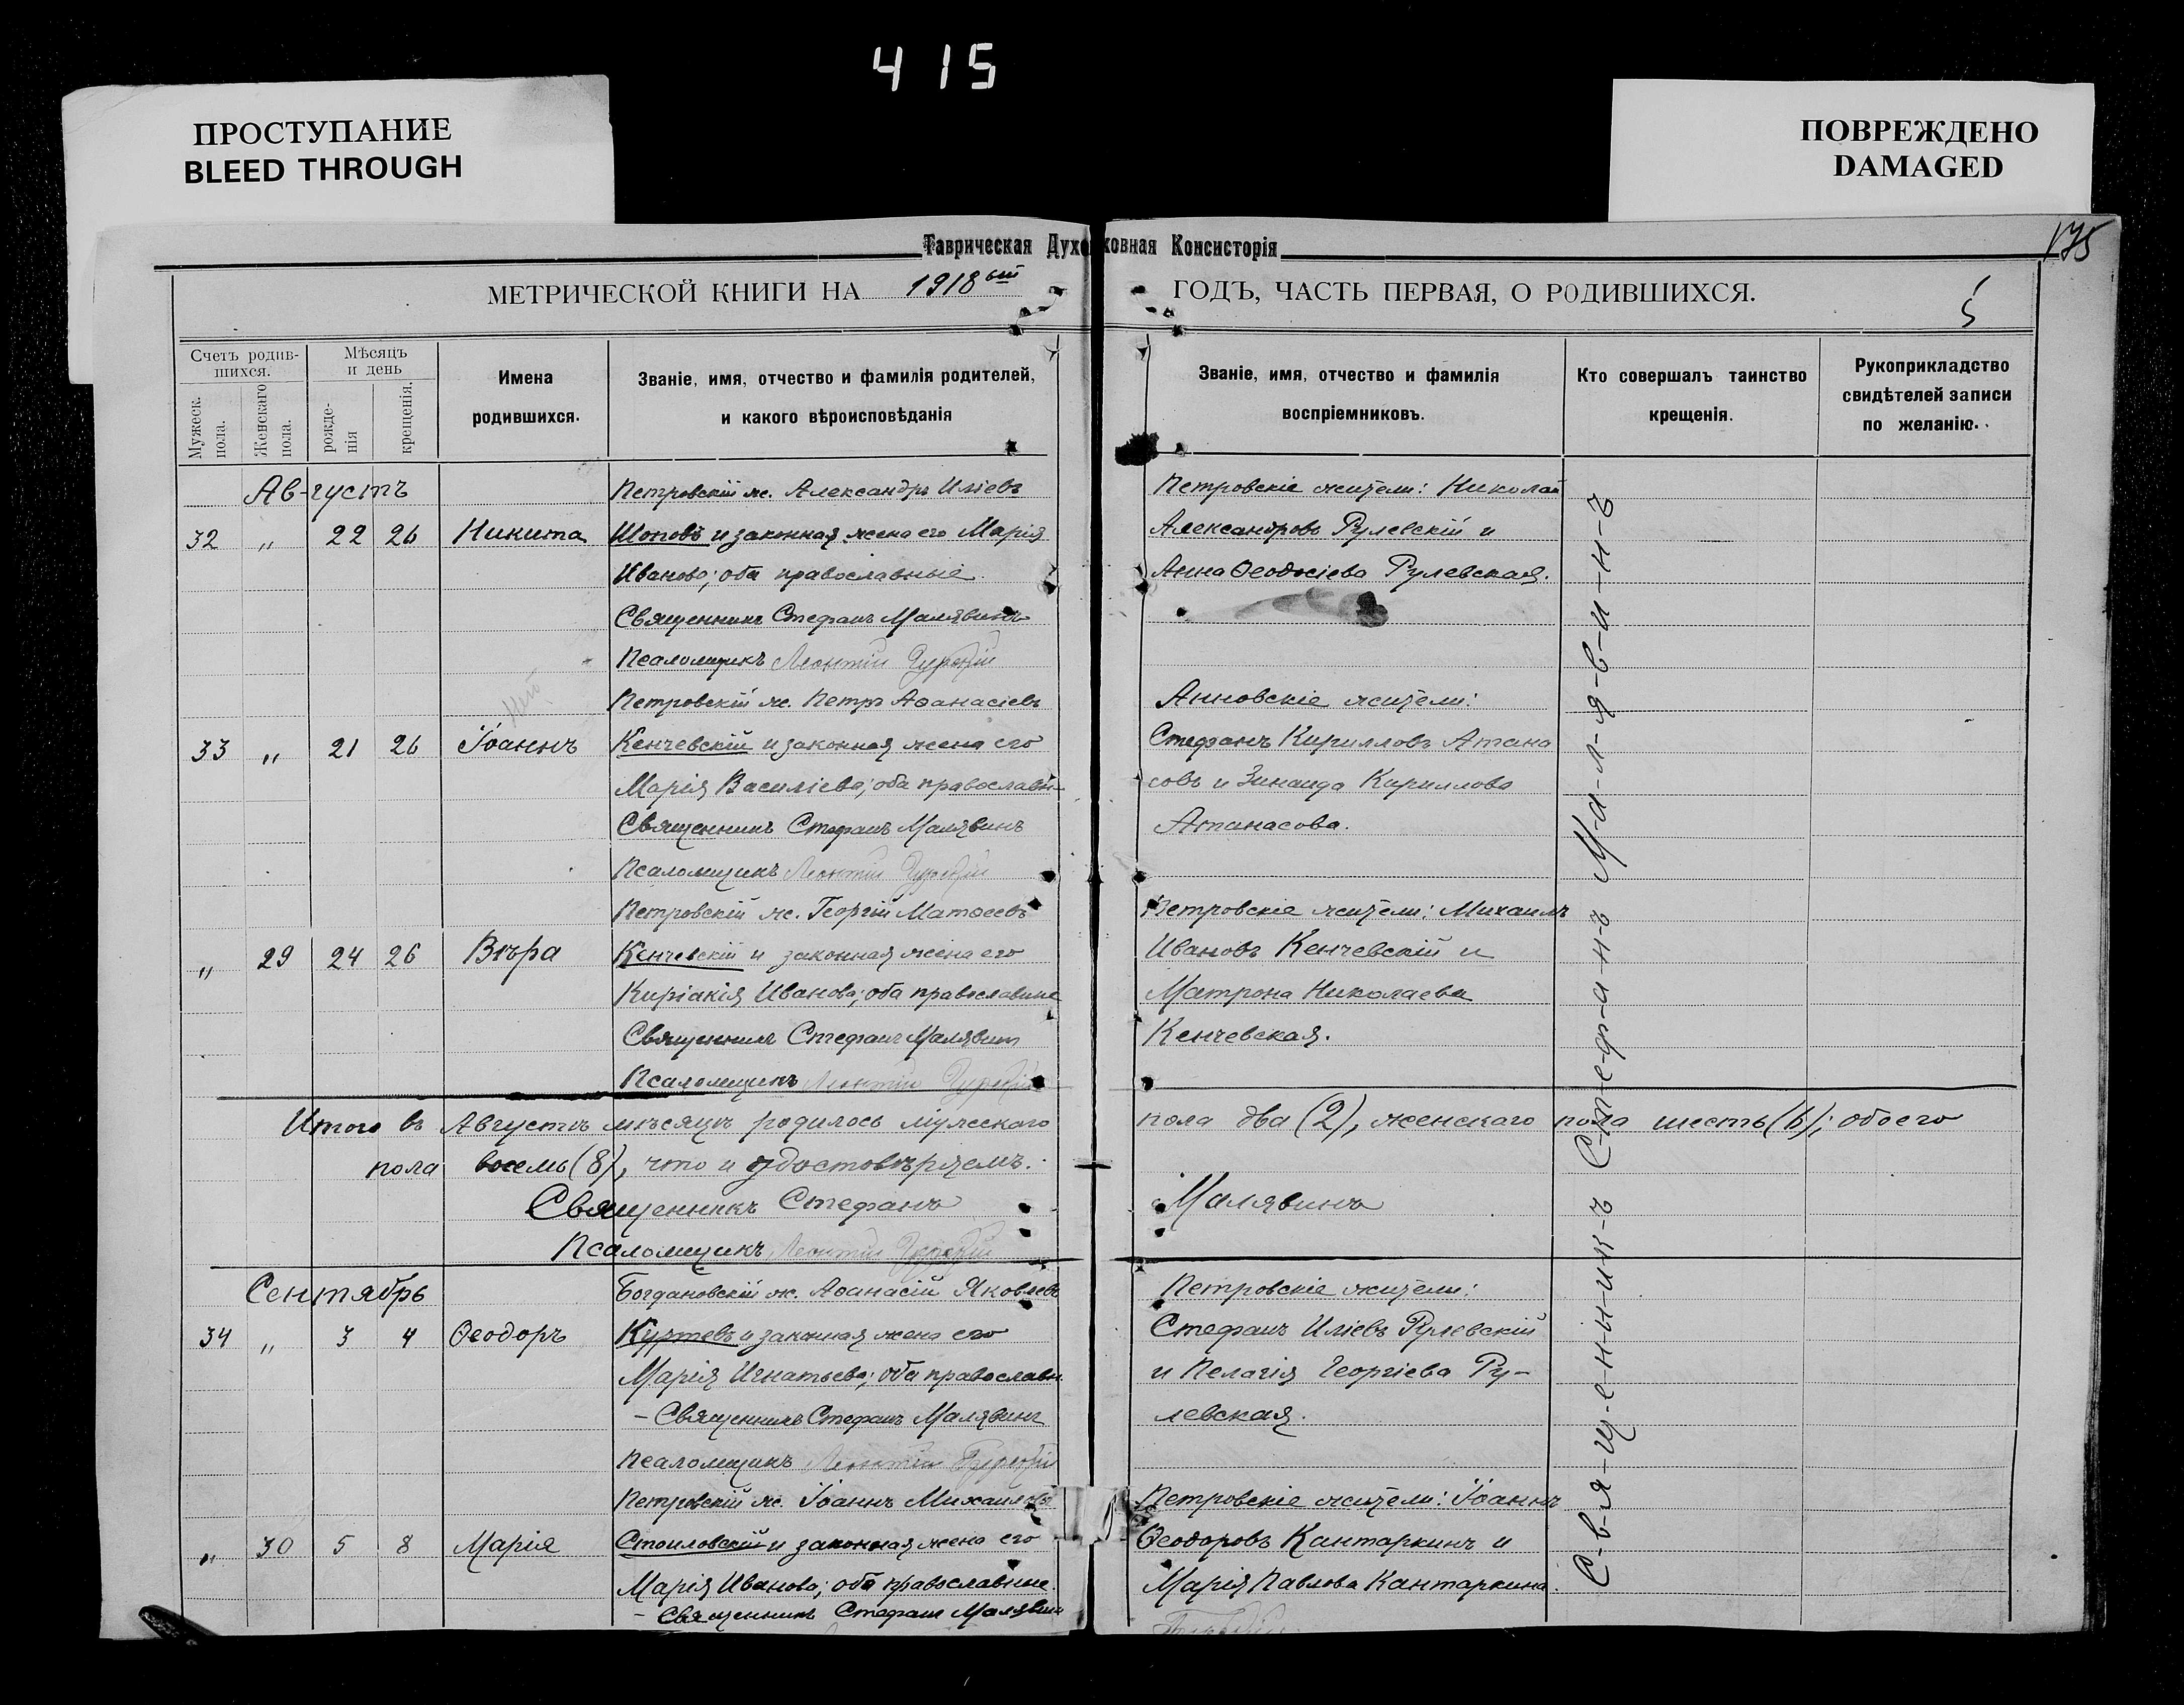 415
ПРОСТУПАНИЕ
BLEED THROUGH
ПОВРЕЖДЕНО
DAMAGED
175
Таврическая Духовная Консисторія
МЕТРИЧЕСКОЙ КНИГИ НА 1918ый ГОДЪ, ЧАСТЬ ПЕРВАЯ, О РОДИВШИХСЯ.
5
Счетъ родив-
шихся.
Мужеск. пола.
Женскаго пола.
Мѣсяцъ
и день
рожде-
нія
крещенія.
Имена
родившихся.
Званіе, имя, отчество и фамилія родителей,
и какого вѣроисповѣданія
Званіе, имя, отчество и фамилія
воспріемниковъ.
Кто совершалъ таинство
крещенія.
Рукоприкладство
свидѣтелей записи
по желанію.
Августъ
32 " 22 26 Никита
Петровскій ж. Александръ Иліевъ
Шоповъ и законная жена его Марія
Иванова; оба православные.
Священникъ Стефанъ Малявинъ
Псаломщикъ Леонтій
Петровскіе жители: Николай
Александровъ Рулевскій и
Анна Ѳеодосіева Рулевская.
33 " 21 26 Іоаннъ
Петровскій ж. Петръ Аѳанасіевъ
Кенчевскій и законная жена его
Марія Василіева; оба православн
Священникъ Стефанъ Малявинъ
Псаломщикъ Леонтій
Анновскіе жители:
Стефанъ Кирилловъ Атана
совъ и Зинаида Кириллова
Атанасова.
" 29 24 26 Вѣра
Петровскій ж. Георгій Матѳеевъ
Кенчевскій и законная жена его
Киріакія Иванова; оба православные
Священникъ Стефанъ Малявин
Псаломщикъ Леонтій
Петровскіе жители: Михаилъ
Ивановъ Кенчевскій и
Матрона Николаева
Кенчевская.
Итого въ Августѣ мѣсяцѣ родилось мужескаго пола два (2), женскаго пола шесть (6); обоего
пола восемь (8), что и удостовѣряемъ.
Священникъ Стефанъ Малявинъ
Псаломщикъ Леонтій
Сентябрь
34 " 3 4 Ѳеодоръ
Богдановскій ж. Аѳанасій Яковлевъ
Куртевъ и законная жена его
Марія Игнатьева; оба православн.
- Священникъ Стефанъ Малявинъ
Псаломщикъ Леонтій
Петровскіе жители:
Стефанъ Иліевъ Рулевскій
и Пелагія Георгіева Ру-
левская.
" 30 5 8 Марія
Петровскій ж. Іоаннъ Михаиловъ
Стоиловскій и законная жена его
Марія Иванова; оба православные.
- Священникъ Стефанъ Малявин
Петровскіе жители: Іоаннъ
Ѳеодоровъ Кантаркинъ и
Марія Павлова Кантаркина.
С-в-я-щ-е-н-н-и-к-ъ С-т-е-ф-а-н-ъ М-а-л-я-в-и-н-ъ